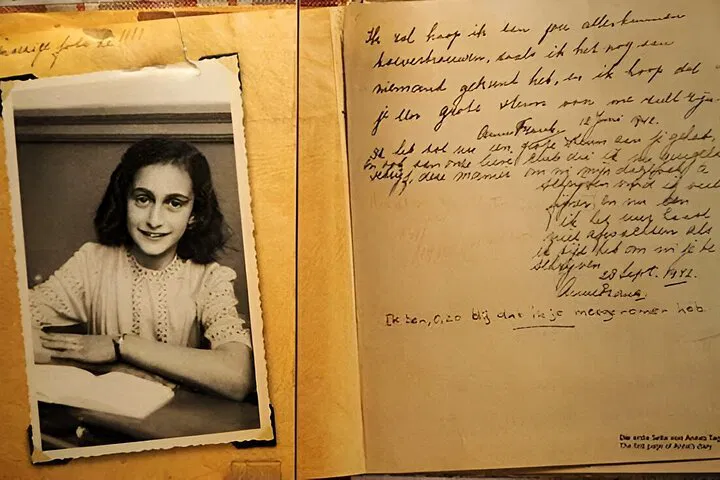 foto hé!!!!
Ik zal hoop ik aan jou alles kunnen
toevertrouwen, zoals ik het nog aan
niemand gekund heb, en ik hoop dat
je een grote steun van me zult zijn.
Anne Frank. 12 Juni 1942.
Ik heb tot nu een grote steun aan je gehad,
en ook aan onze lieve club die ik nu
schrijf, deze manier om in mijn dagboek te
schrijven vind ik veel
fijner en nu kan
ik het uur haast
niet afwachten als
ik tijd heb om in je te
schrijven
28 Sept. 1942.
Anne Frank.
Ik ben, o, zo blij dat ik je meegenomen heb
Die erste Seite von Annes Tag
The first page of Anne's diary